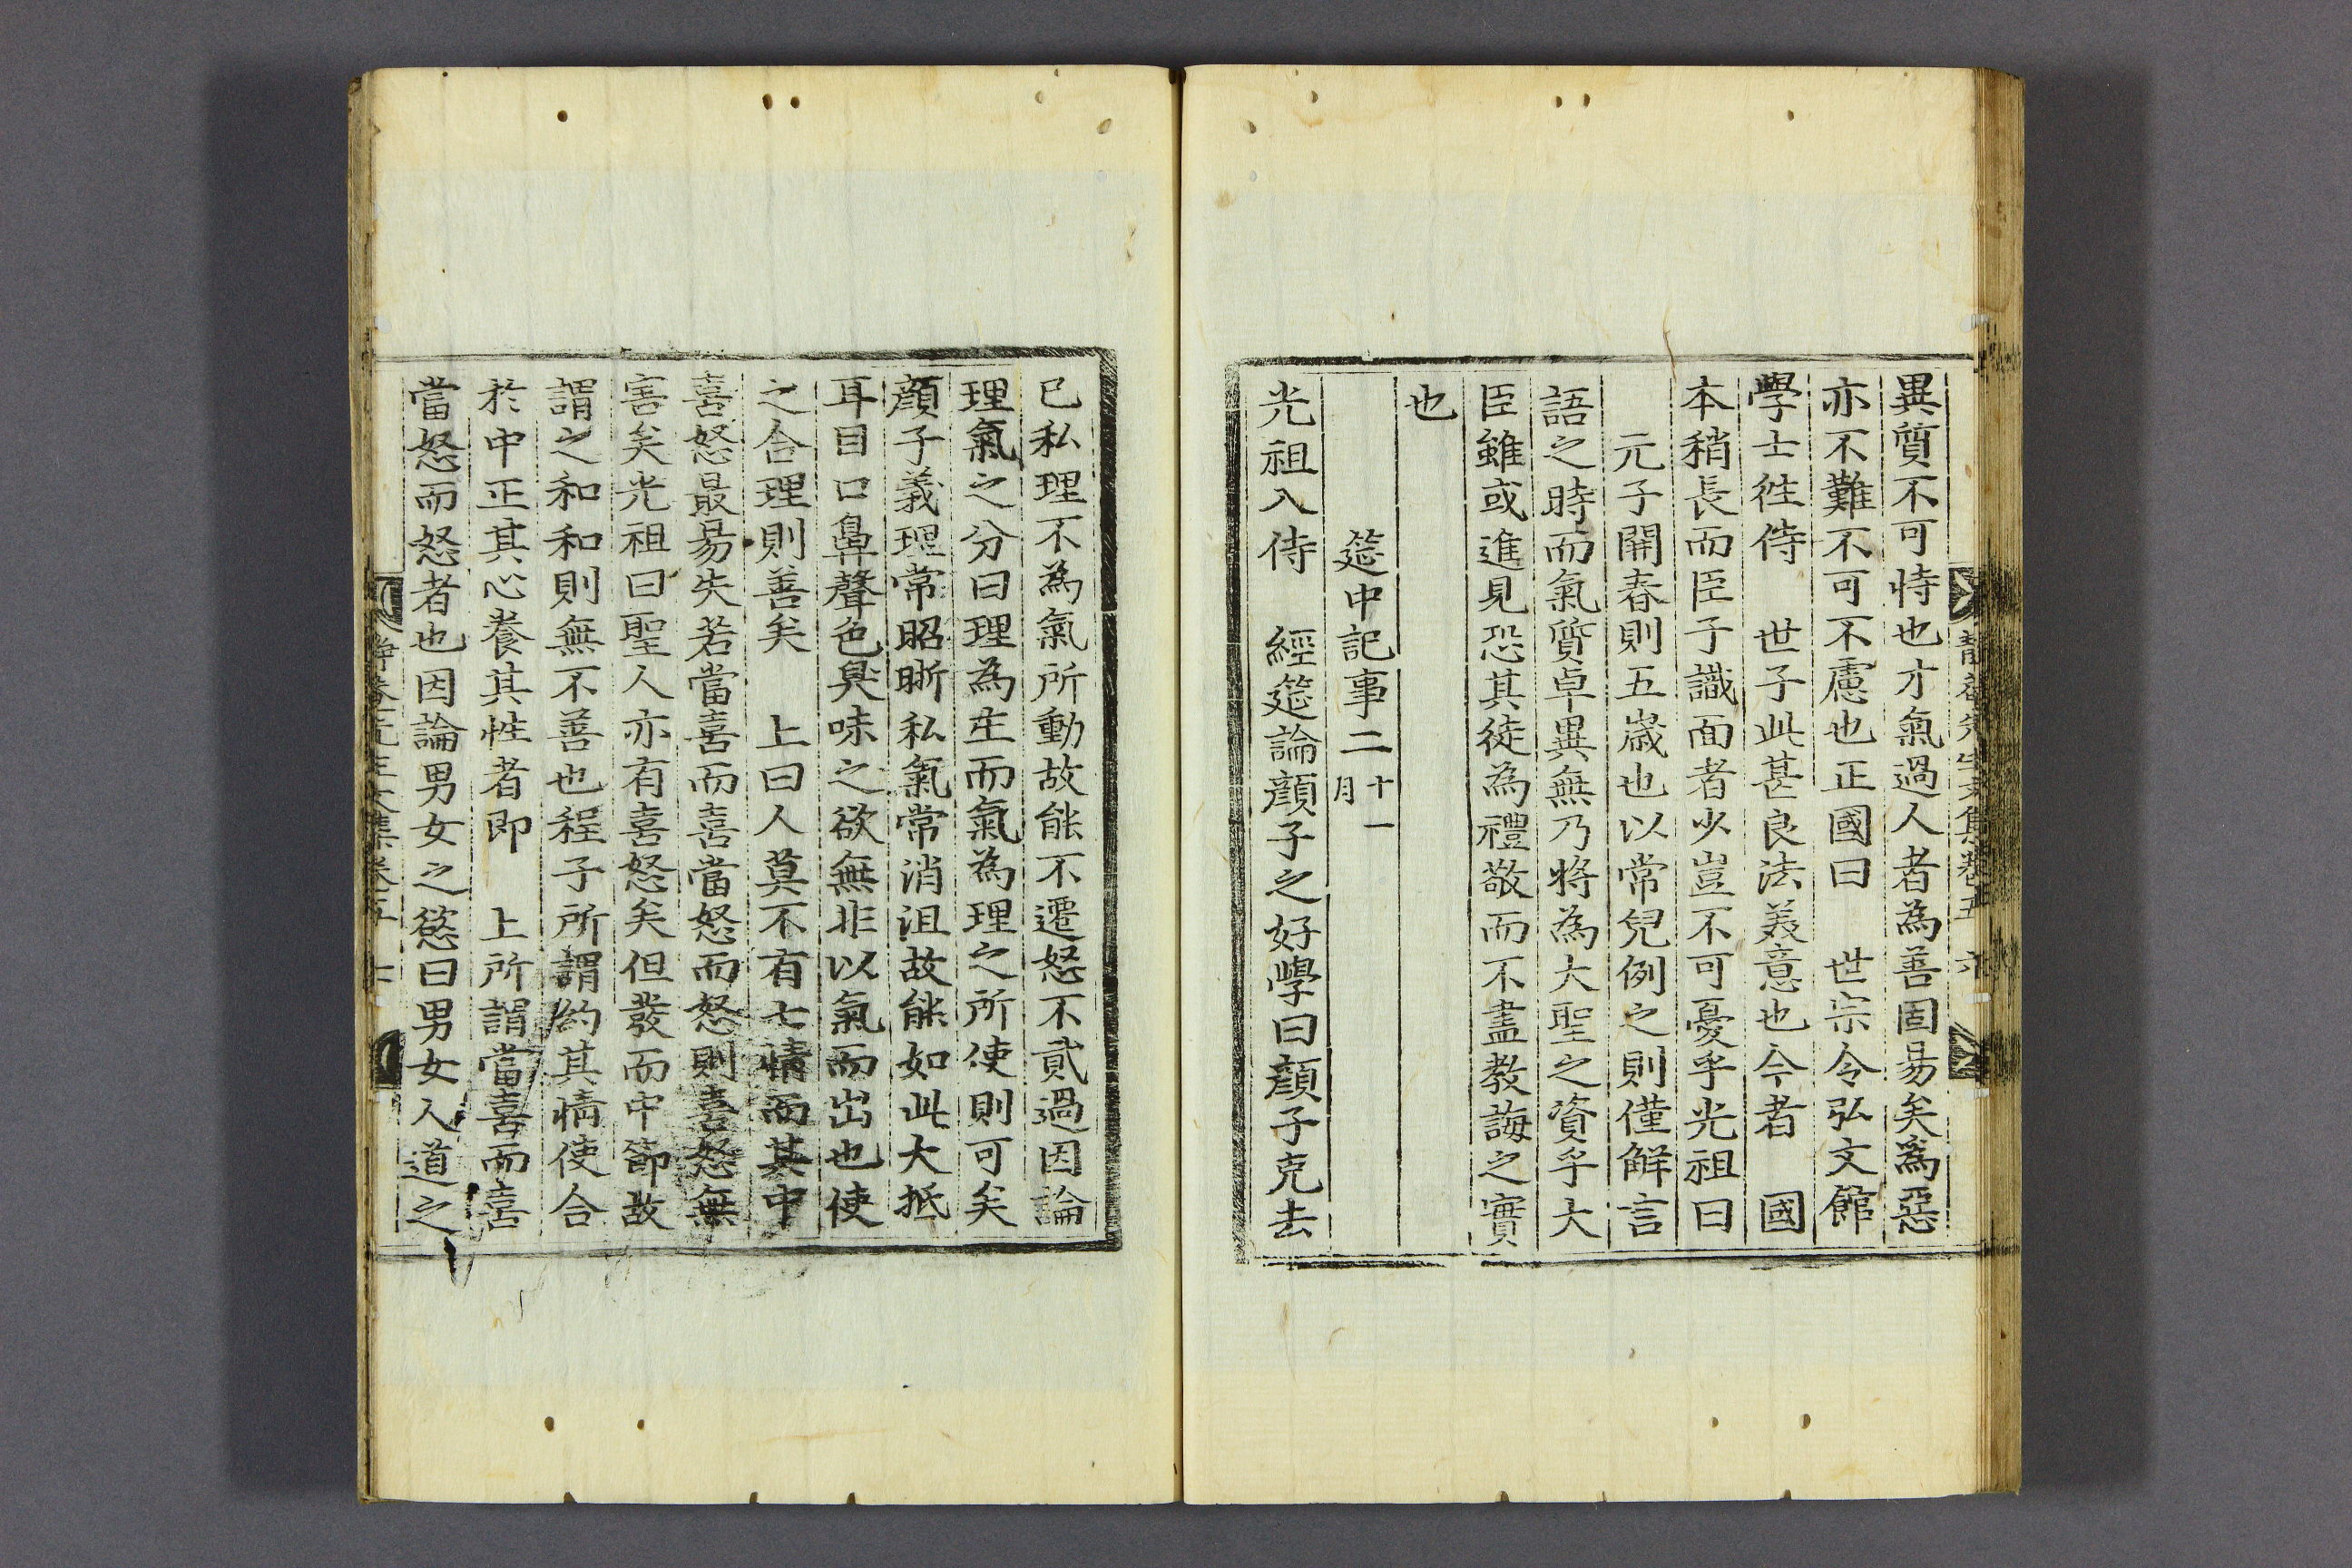 異質不可恃也才氣過人者為善固易矣爲惡
亦不難不可不慮也正國曰 世宗令弘文館
學士徃侍 世子此甚良法美意也今者 國
本稍長而臣子識面者少豈不可憂乎光祖曰
元子開春則五歲也以常兒例之則僅解言
語之時而氣質卓異無乃將為大聖之資乎大
臣雖或進見恐其徒為禮敬而不盡教誨之實
也
筵中記事二 十一月
光祖入侍 經筵論顔子之好學曰顔子克去
己私理不為氣所動故能不遷怒不貳過因論
理氣之分曰理為主而氣為理之所使則可矣
顔子義理常昭晣私氣常消沮故能如此大抵
耳目口鼻聲色臭味之欲無非以氣而出也使
之合理則善矣 上曰人莫不有七情而其中
喜怒最易失若當喜而喜當怒而怒則喜怒無
害矣光祖曰聖人亦有喜怒矣但發而中節故
謂之和和則無不善也程子所謂約其情使合
於中正其心養其性者即 上所謂當喜而喜
當怒而怒者也因論男女之慾曰男女人道之